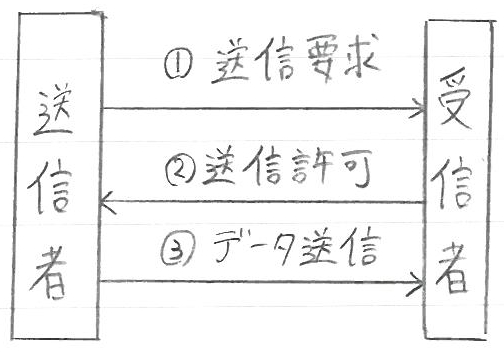 送信者
① 送信要求
② 送信許可
③ データ送信
受信者